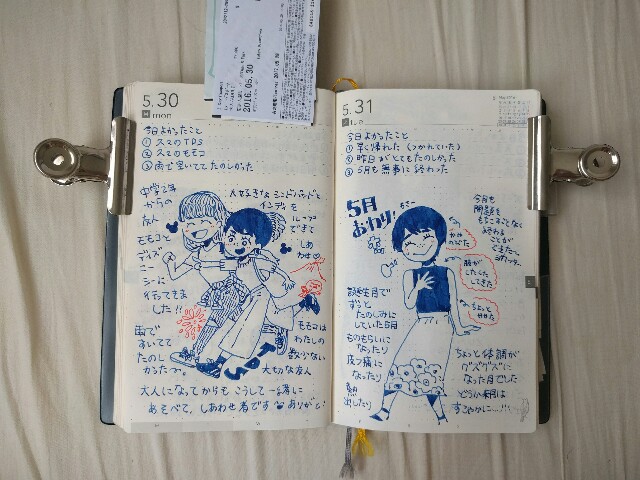 2016.05.30
5.30
mon
今日よかったこと
① スマのTDS
② スマのモモコ
③ 雨で空いててたのしかった
中学2年
からの
友人
モモコと
ディズ
ニー
シーに
行ってきま
した!!
大好きなシンドバッドと
インディを
ループ
できて
しあ
わせ♡
雨で
すいてて
たのし
かったっ。
モモコは
わたしの
数少ない
大切な友人
大人になってからも こうして一緒に
あそべて、しあわせ者です ありがと!
5.31
tue
今日よかったこと
① 早く帰れた (つかれていた)
② 昨日がとてもたのしかった
③ 5月も無事に終わった
5月
おわり!
もう
今月も
問題を
もちこすことなく
終わる
ことが
できた〜
かみ
のびた
腹が
したく
してきた
ちょっと
やけた
誕生月で
ずっと
たのしみに
していた5月
ものもらいに
なったり
皮フ痛に
なったり
熱
出したり
ちょっと体調が
グズグズに
なった月でした
どうか来月は
すこやかに…!!!